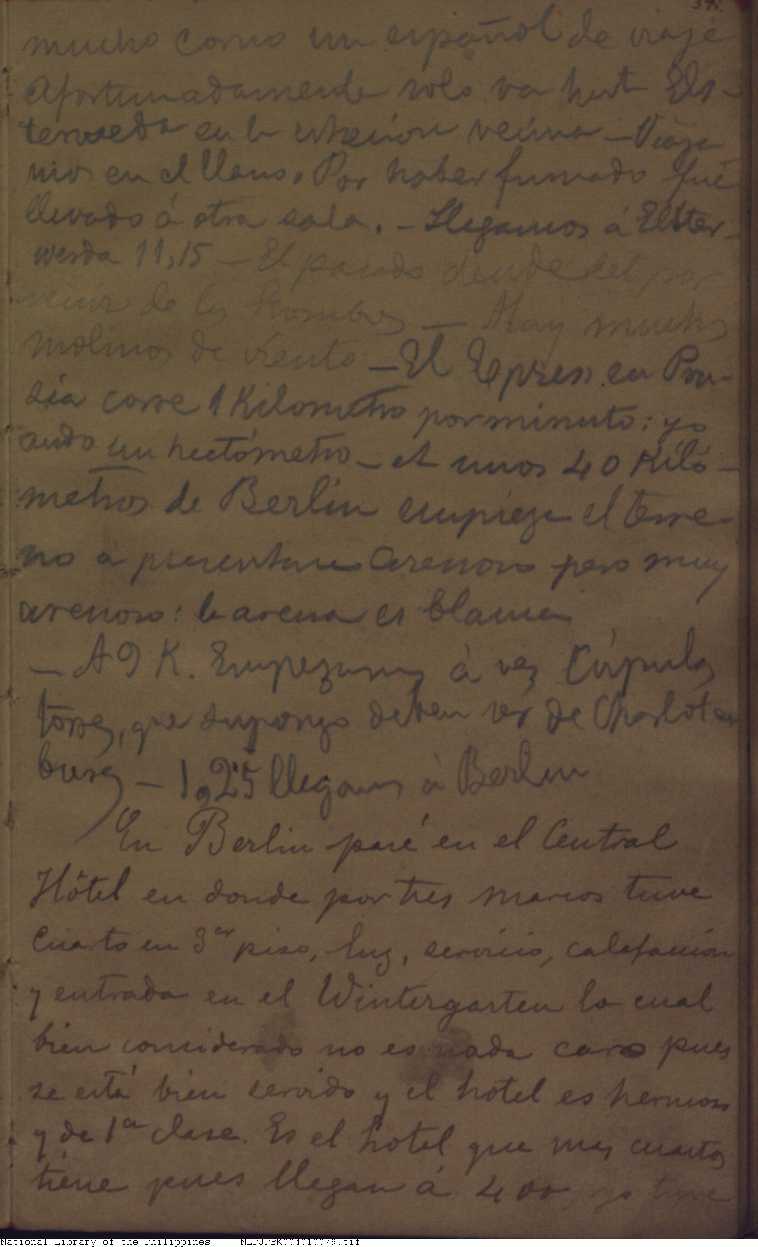 mucho como un español de viaje
Afortunadamente solo va hast Els-
terwerda en la estacion vecina - Viaja
mos en el llano. Por haber fumado fué
llevado á otra sala. - Llegamos á Elster-
werda 11,15 - El pasado del por
venir de los hombres - Hay muchos
molinos de viento - El Expres en Pru-
sia corre 1 Kilometro por minuto: yo
ando un hectómetro - A unos 40 Kiló-
metros de Berlin empieza el terre-
no á presentarse arenoso pero muy
arenoso: la arena es blanca
- A 9 K. Empezamos á ver Cúpulas
torres, que supongo deben ser de Charloten
burg - 1,25 llegamos á Berlin
En Berlin paré en el Central
Hôtel en donde por tres marcos tuve
cuarto en 3er piso, luz, servicio, calefaccion
y entrada en el Wintergarten lo cual
bien considerado no es nada caro pues
se está bien servido y el hotel es hermoso
y de 1a clase. Es el hotel que mas cuartos
tiene pues llegan á 400 yo tuve
National Library of the Philippines